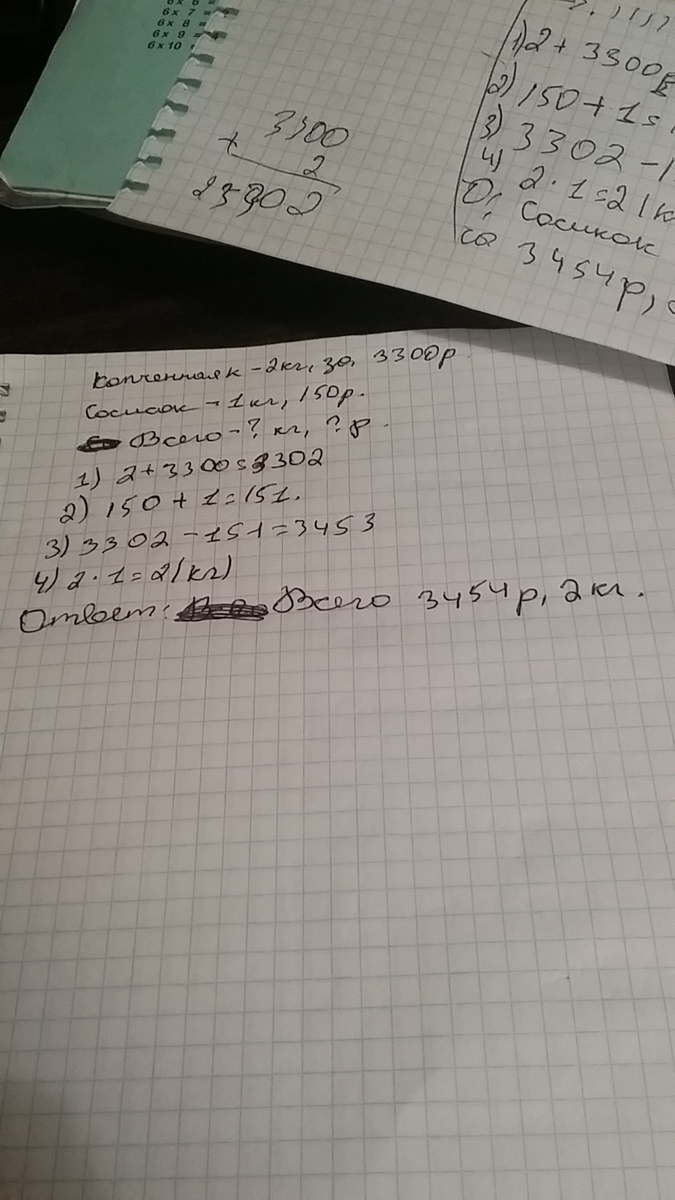 6 x 6 =
6 x 7 =
6 x 8 =
6 x 9 =
6 x 10 =
3300
+ 2
3302
1) 2 + 3300
2) 150 + 1 =
3) 3302 - 1
4) 2 · 1 = 2 (к
Сосисок
3454р,
Копченная к - 2кг, за, 3300р
Сосисок - 1кг, 150р.
Всего - ? кг, ? р.
1) 2 + 3300 = 3302
2) 150 + 1 = 151.
3) 3302 - 151 = 3453
4) 2 · 1 = 2 (кг)
Ответ: Всего 3454р, 2кг.